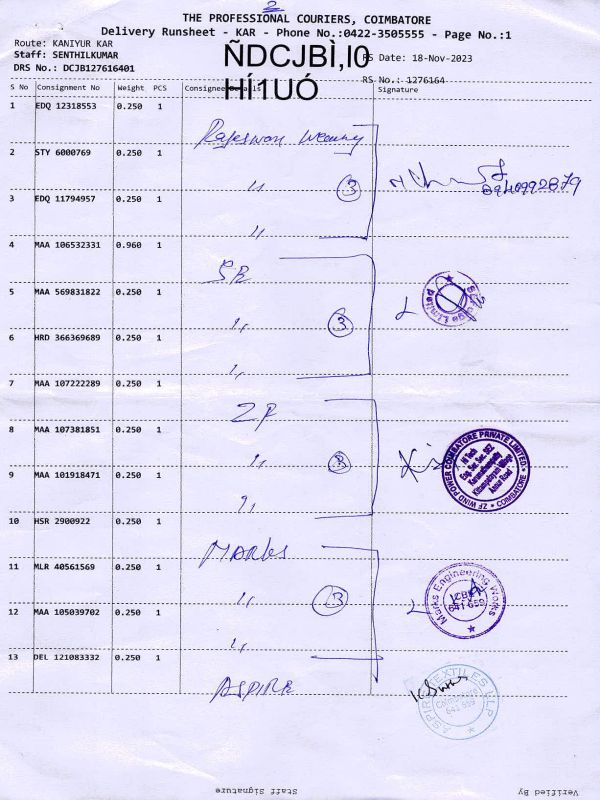 2
THE PROFESSIONAL COURIERS, COIMBATORE
Delivery Runsheet - KAR - Phone No.:0422-3505555 - Page No.:1
Route: KANIYUR KAR
Staff: SENTHILKUMAR
RS Date: 18-Nov-2023
DRS No.: DCJB127616401
RS No.: 1276164
ÑDCJBÌ,I0
HÍ1UÓ
S No Consignment No Weight PCS Consignee Details Signature
1 EDQ 12318553 0.250 1
2 STY 6000769 0.250 1
3 EDQ 11794957 0.250 1
3
4 MAA 106532331 0.960 1
SR
5 MAA 569831822 0.250 1
3
6 HRD 366369689 0.250 1
7 MAA 107222289 0.250 1
ZF
8 MAA 107381851 0.250 1
3
ZF WIND POWER COIMBATORE PRIVATE LIMITED
COIMBATORE
9 MAA 101918471 0.250 1
10 HSR 2900922 0.250 1
Marks
11 MLR 40561569 0.250 1
3
Marks Engineering Works
CBE
641 659
12 MAA 105039702 0.250 1
13 DEL 121083332 0.250 1
ASPIRE
ASPIRE TEXTILES LLP
Coimbatore
641 659
Staff Signature
Verified By